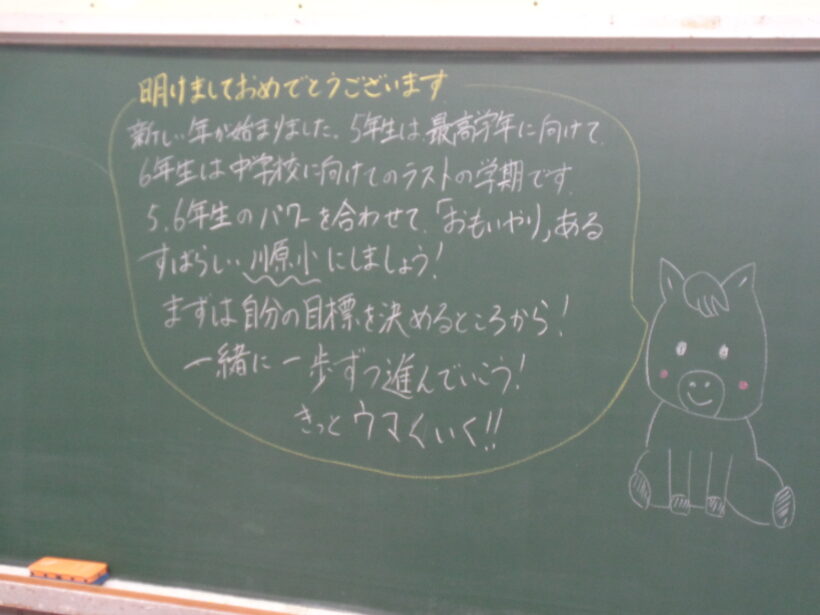 明けましておめでとうございます
新しい年が始まりました。5年生は、最高学年に向けて、
6年生は中学校に向けてのラストの学期です。
5、6年生のパワーを合わせて、「おもいやり」ある
すばらしい川原小にしましょう!
まずは自分の目標を決めるところから!
一緒に一歩ずつ進んでいこう!
きっとウマくいく!!